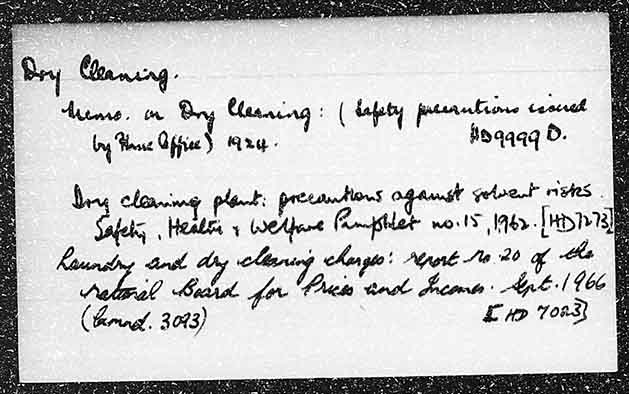 Dry Cleaning.
Memo. on Dry Cleaning: (Safety precautions issued
by Home Office) 1924. HD9999 D.
Dry cleaning plant: precautions against solvent risks.
Safety, Health & Welfare Pamphlet no. 15, 1962. [HD7273]
Laundry and dry cleaning charges: report no. 20 of the
National Board for Prices and Incomes. Sept. 1966
(Cmnd. 3093) [HD 7023]